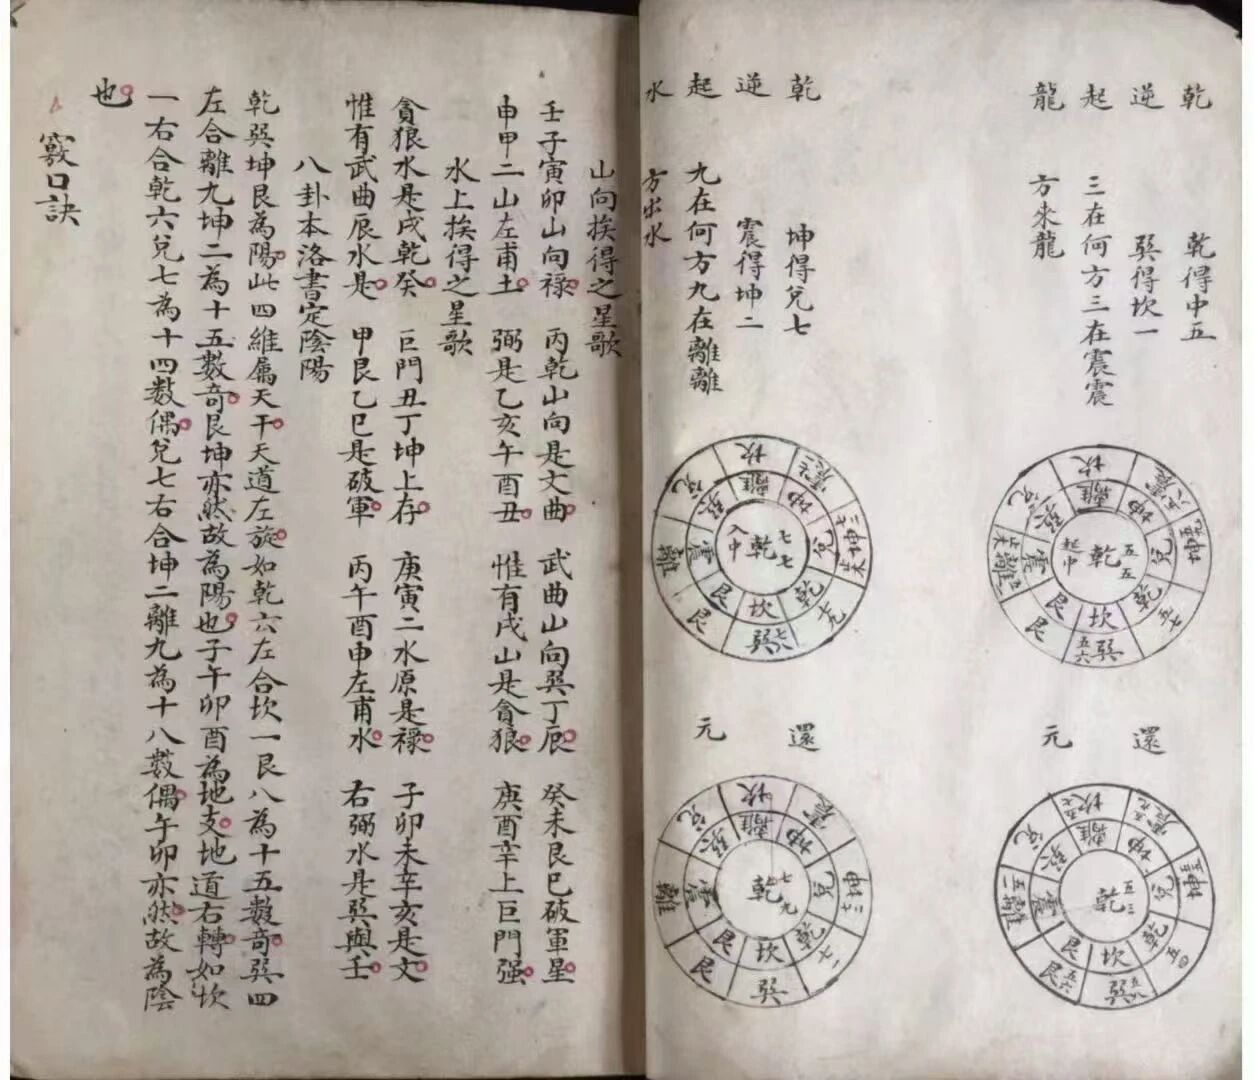 乾逆起龍
乾得中五
巽得坎一
三在何方三在震震
方來龍
乾逆起水
坤得兌七
震得坤二
九在何方九在離離
方出水
坎
離
坤
震
兌
巽
乾
艮
坎
乾
五五
起中
坎
離
坤
震
兌
巽
乾
入中
七七
艮
還元
還元
乾
五三
坎
離
坤
震
兌
巽
艮
乾
七九
坎
離
坤
震
兌
巽
艮
山向挨得之星歌
壬子寅卯山向祿 丙乾山向是文曲 武曲山向巽丁辰 癸未艮巳破軍星
申甲二山左甫土 弼是乙亥午酉丑 惟有戌山是貪狼 庚酉辛上巨門强
水上挨得之星歌
貪狼水是戌乾癸 巨門丑丁坤上存 庚寅二水原是祿 子卯未辛亥是文
惟有武曲辰水是 甲艮乙巳是破軍 丙午酉申左甫水 右弼水是巽與壬
八卦本洛書定陰陽
乾巽坤艮為陽此四維屬天干天道左旋如乾六左合坎一艮八為十五數奇巽四
左合離九坤二為十五數奇艮坤亦然故為陽也子午卯酉為地支地道右轉如坎
一右合乾六兌七為十四數偶兌七右合坤二離九為十八數偶午卯亦然故為陰
也
竅口訣